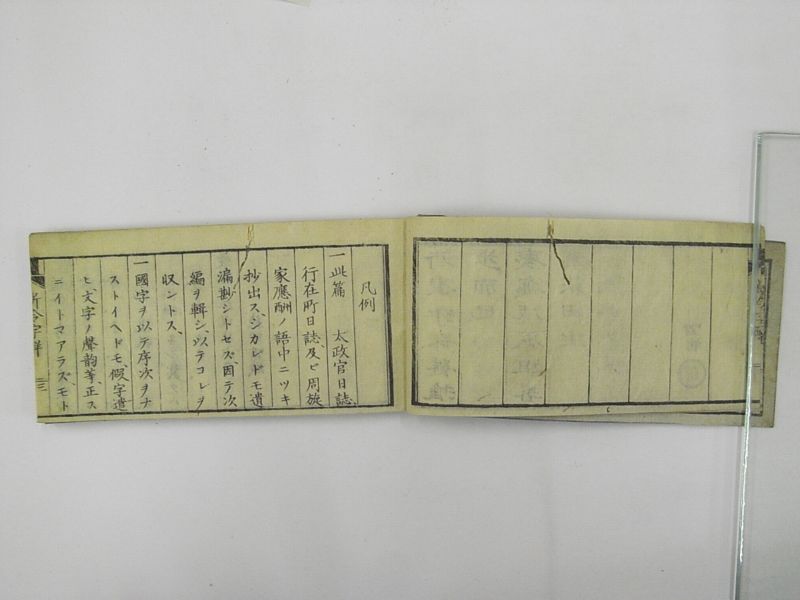 凡例
一此篇 太政官日誌
行在町日誌、及ビ周旋
家應酬ノ語中ニツキ
抄出ス、シカレドモ遺
漏尠シトセズ、因テ次
編ヲ輯シ、以テコレヲ
収ントス、
一國字ヲ以テ序次ヲナ
ストイヘドモ、假字遣
ヒ文字ノ聲韵䓁、正ス
ニイトマアラズ、モト